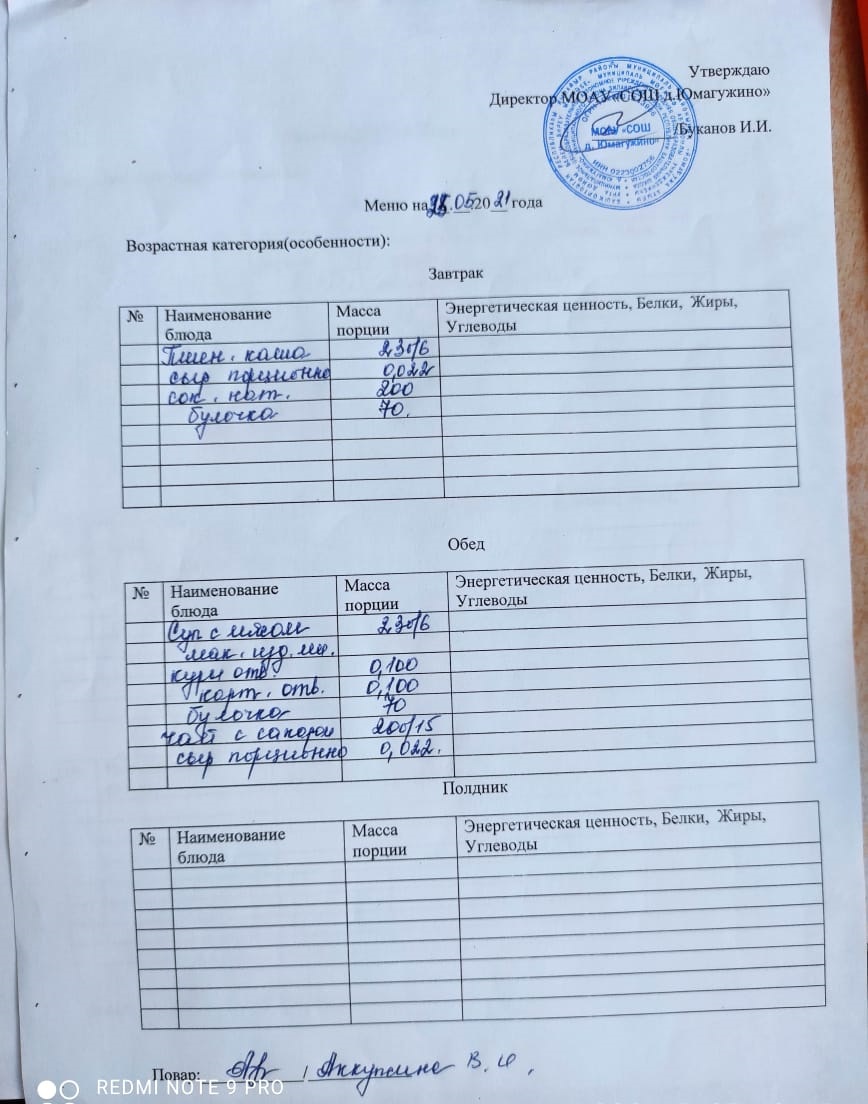 Утверждаю
Директор МОАУ «СОШ д.Юмагужино»
МОАУ «СОШ
д. Юмагужино»
ИНН 0223002756
/Буканов И.И.
Меню на .05.2021 года
Возрастная категория(особенности):
Завтрак
№ Наименование блюда Масса порции Энергетическая ценность, Белки, Жиры, Углеводы
Пшен. каша 230/6
сыр порционно 0,022
сок. нат. 200
булочка 70.
Обед
№ Наименование блюда Масса порции Энергетическая ценность, Белки, Жиры, Углеводы
Суп с мясом 230/6
мак. изд.
куры отв. 0,100
карт. отв. 0,100
булочка 70
чай с сахаром 200/15
сыр порционно 0,022.
Полдник
№ Наименование блюда Масса порции Энергетическая ценность, Белки, Жиры, Углеводы
Повар: / Аккужина В.
REDMI NOTE 9 PRO